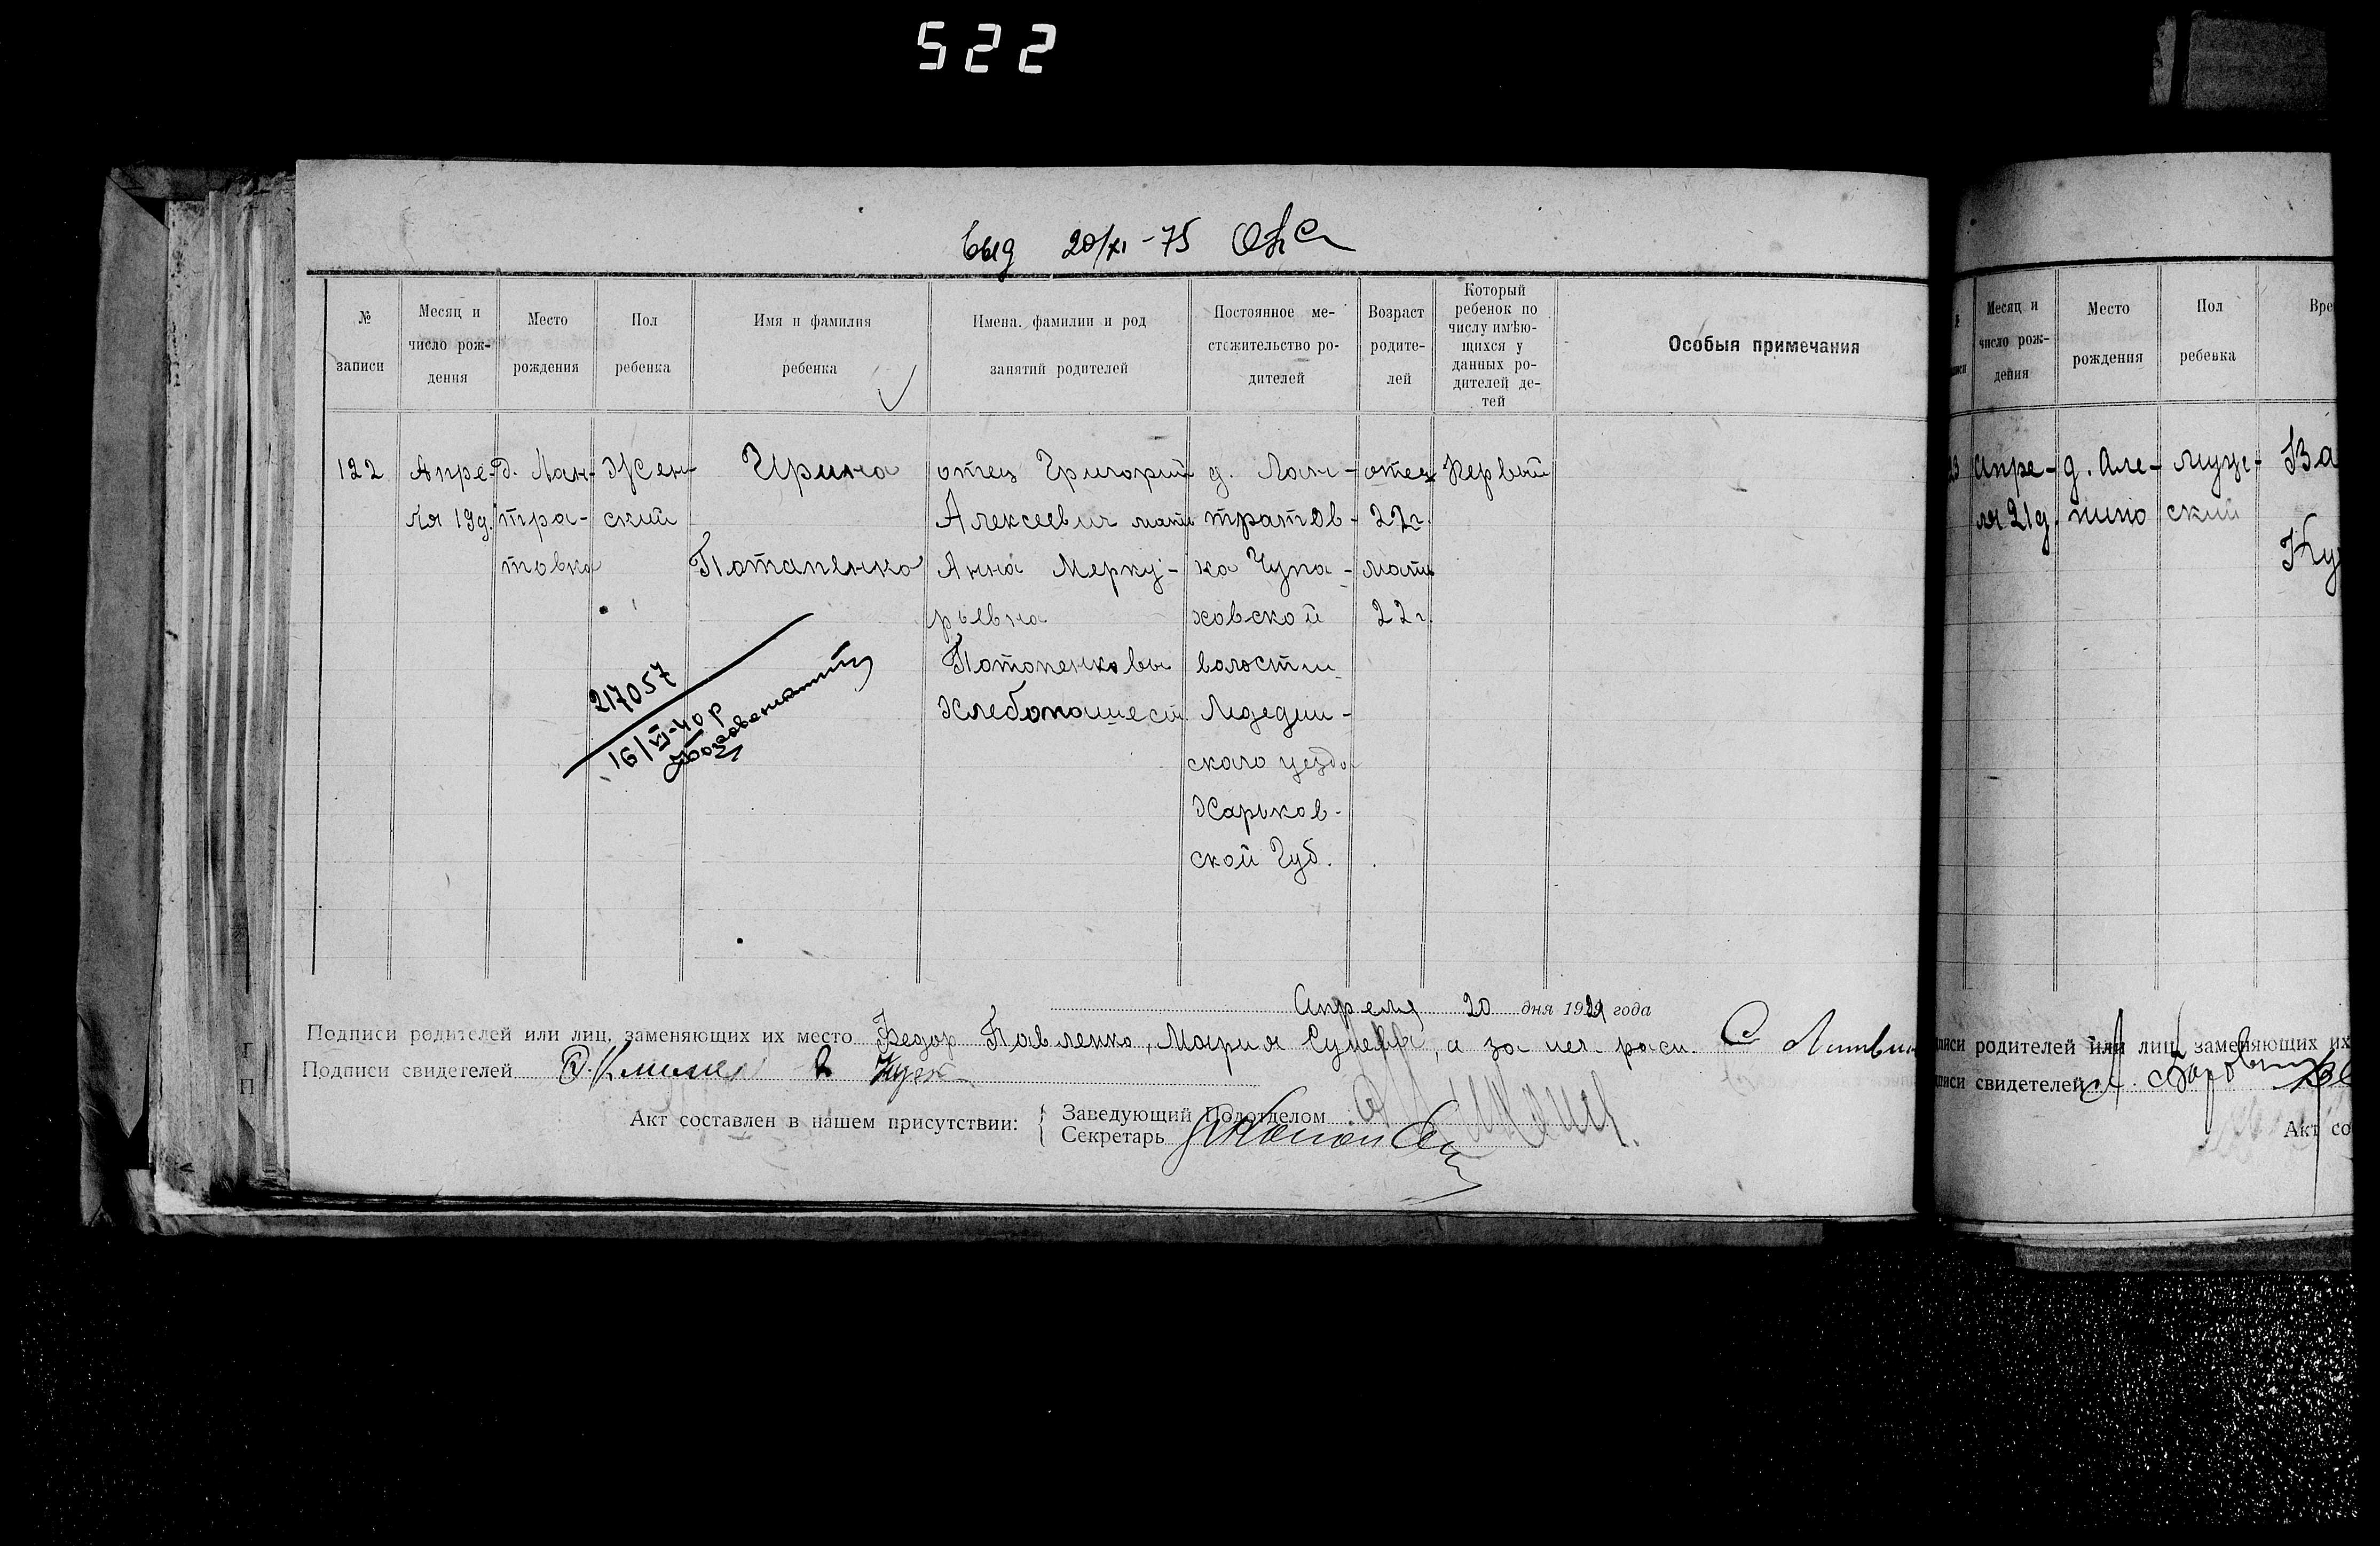 522
выд 20/XI - 75
№ записи
Месяц и число рож-дения
Место рождения
Пол ребенка
Имя и фамилия ребенка
Имена, фамилии и род занятий родителей
Постоянное ме-стожительство ро-дителей
Возраст родите-лей
Который ребенок по числу имѣю-щихся у данных ро-дителей де-тей
Особыя примечания
122
Апре-
ля 19д.
д. Лан-
тра-
товка
Жен-
ский
Ирина
Потапенко
отец Григорий
Алексеевич мать
Анна Мерку-
рьевна
Потапенковы
Хлебопашест.
д. Лан-
тратов-
ка Чупа-
ховской
волости
Лебедин-
скаго уезда
Харьков-
ской Губ.
отец
22г.
мать
22г.
Первый
217057
16/VI-40р
Апреля 20 дня 1921 года
Подписи родителей или лиц, заменяющих их место Федор Павленко, Мария а за нег. расп.
Подписи свидетелей
Акт составлен в нашем присутствии:
Заведующий Подотделом
Секретарь
Месяц и число рож-дения
Место рождения
Пол ребенка
Вре
23
Апре-
ля 21д.
д. Але-
шино
муж-
ский
Ва
Ку
писи родителей или лиц, заменяющих их
писи свидетелей
Акт со